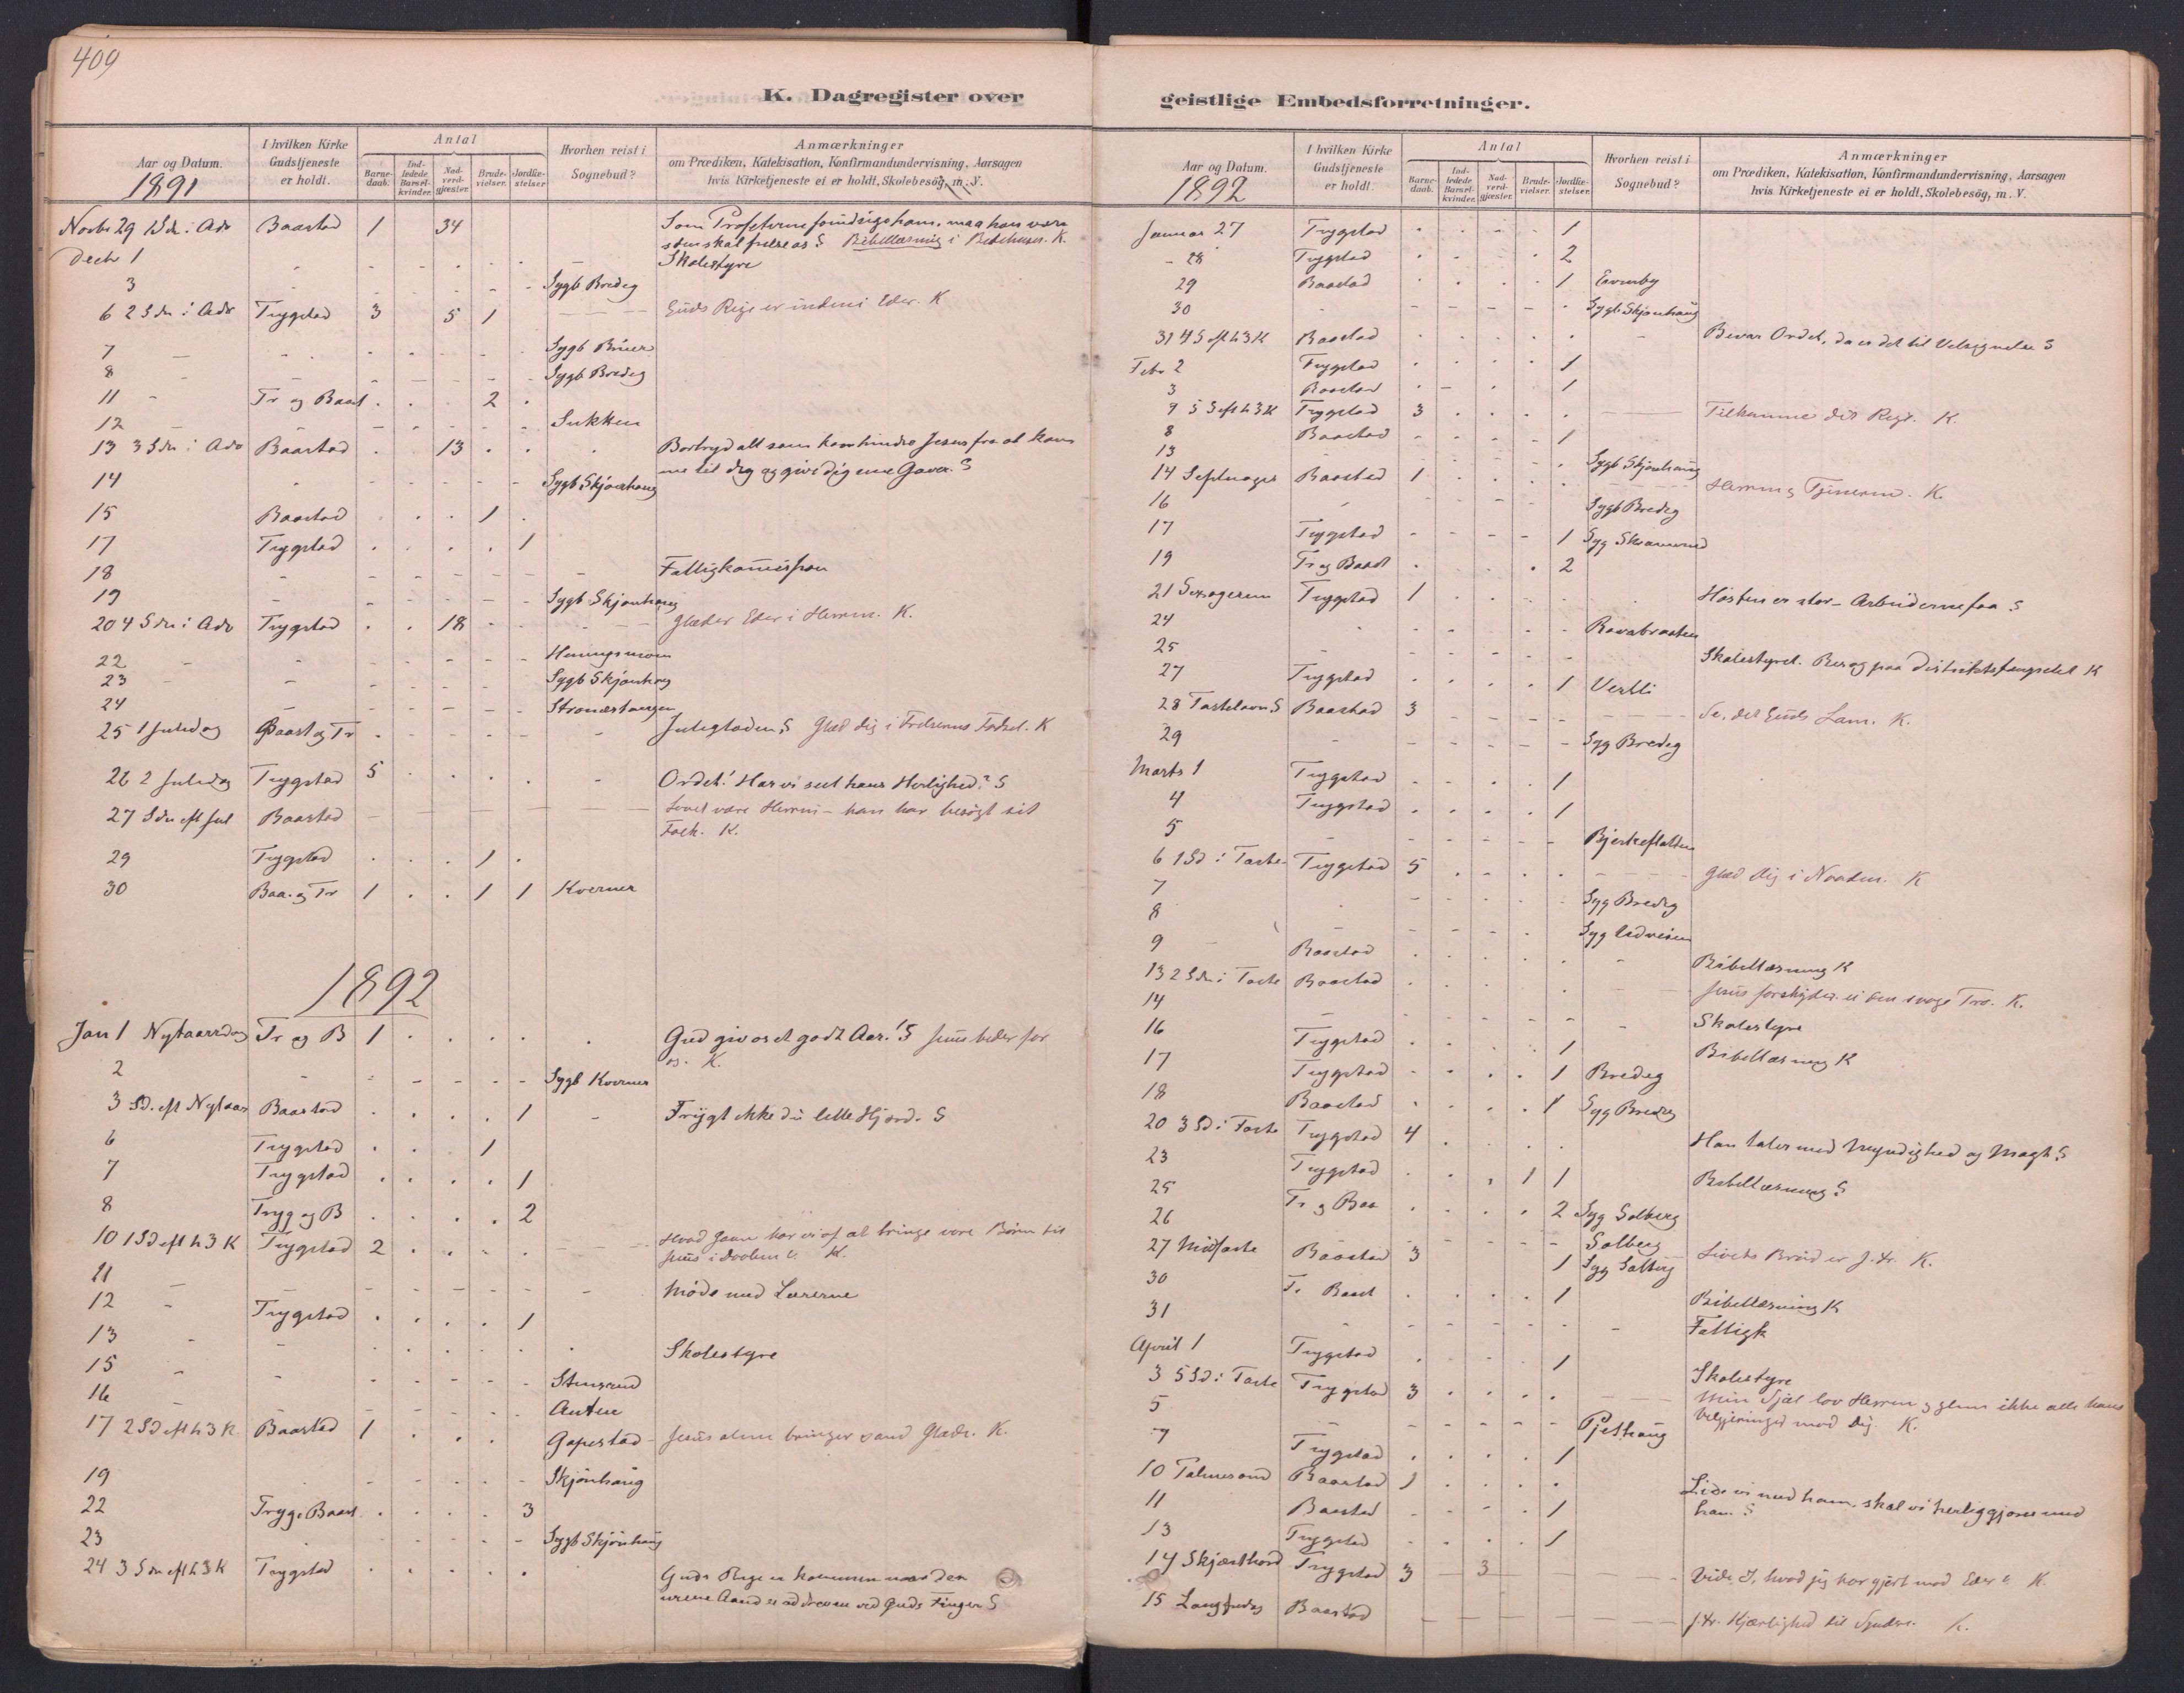 409
K. Dagregister over
Aar og Datum.
1891
I hvilken Kirke Gudstjeneste er holdt.
Antal
Barne-daab.
Ind-ledede Barsel-kvinder.
Nad-verd-gjæster.
Brude-vielser.
Jordfæ-stelser
Hvorhen reist i Sognebud?
Anmærkninger
om Prædiken, Katekisation, Konfirmandundervisning, Aarsagen
hvis Kirketjeneste ei er holdt, Skolebesög, m. V.
Novbr 29 1 Sdn i Adv Baastad 1 34 Som Profeterne ham, maa han være
som skal frelse os S Bibellæsning i Bedehuset. K.
Decbr 1 Skolestyre
3 Sygb Bredeg
6 2 Sdn i Adv Trygstad 3 5 1 Guds Rige er inden i Eder. K
7 Sygb
8 Sygb Bredeg
11 Tr og Baast 2
12 Sukken
13 3 Sdn i Adv Baastad 13 Bortryd alt som kan hindre Jesus fra at kom
me til dig og give dig sine Gaver. S
14 Sygb Skjønhaug
15 Baastad 1
17 Trygstad 1
18 Fattigkommission
19 Sygb Skjønhaug
20 4 Sdn i Adv Trygstad 18 Glæder Eder i Herren. K.
22 Heningsmoen
23 Sygb Skjønhaug
24
25 1 Juledag Baast og Tr Juleglæden S Glæd dig i Frelserens Fødsel. K
26 2 Juledag Trygstad 5 Ordet! Har vi seet hans Herlighed? S
27 Sdn eft Jul Baastad Lovet være Herren – han har besøgt sit
Folk. K.
29 Trygstad 1
30 Baa. og Tr 1 1 1 Kverner
1892
Jan 1 Nytaarsdag Tr og B 1 Gud giv os et godt Aar! S Jesus beder for
os. K.
2 Sygb Kverner
3 Sd. eft Nytaar Baastad 1 Frygt ikke du lille Hjord. S
6 Trygstad 1
7 Trygstad 1
8 Tryg og B 2
10 1 Sd eft h 3 K Trygstad 2 Hvad Gavn har vi af at bringe vore Børn til
Jesus i Daaben? K.
11 Møde med Lærerne
12 Trygstad 1
13 Skolestyre
15 Stensrud
16
17 2 Sd eft h 3 K. Baastad 1 Gopestad Jesus alene bringer sand Glæde. K.
19 Skjønhaug
22 Tryg. Baast 3
23 Sygb Skjønhaug
24 3 Sdn eft h 3 K Trygstad Guds Rige er kommen naar den
urene Aand er uddreven ved Guds Finger S
geistlige Embedsforretninger.
Aar og Datum.
1892
I hvilken Kirke Gudstjeneste er holdt.
Antal
Barne-daab.
Ind-ledede Barsel-kvinder.
Nad-verd-gjæster.
Brude-vielser.
Jordfæ-stelser.
Hvorhen reist i Sognebud?
Anmærkninger
om Prædiken, Katekisation, Konfirmandundervisning, Aarsagen
hvis Kirketjeneste ei er holdt, Skolebesög, m. V.
Januar 27 Trygstad 1
28 Trygstad 2
29 Baastad 1
30 Sygb Skjønhaug
31 4 S eft h 3 K Baastad Bevar Ordet, da er det til Velsignelse S
Febr 2 Trygstad 1
3 Baastad 1
5 S eft h 3 K Trygstad 3 Tilkomme dit Rige. K.
8 Baastad 1
13 Sygb Skjønhaug
14 Septuages Baastad 1 Herren og Tjeneren. K.
16 Sygb Bredeg
17 Trygstad 1 Syg
19 Tr og Baast 2
21 Sexagesim Trygstad 1 Høsten er stor – Arbeiderne faa S
24
25 Skolestyret. Besøg paa Distriktsfængslet K
27 Trygstad 1 Vestli
28 Fastelavn S Baastad 3 Se, det Guds Lam. K.
29 Syg Bredeg
Marts 1 Trygstad 1
4 Trygstad 1
5
6 1 Sd i Faste Trygstad 5 Glæd dig i Naaden. K
7 Syg Bredeg
8 Syg
9 Baastad Bibellæsning K
13 2 Sdn i Faste Baastad Jesus forskyder ei den svage Tro. K.
14 Skolestyre
16 Trygstad 1 Bibellæsning K
17 Trygstad 1 Bredeg
18 Baastad 1 Syg Bredeg
20 3 Sd i Faste Trygstad 4 Han taler med Myndighed og Magt S
23 Trygstad 1 1 Bibellæsning S
25 Tr og Baa 2 Syg Solberg
26 Solberg
27 Midfaste Baastad 3 1 Syg Solberg Livets Brød er J. Kr. K.
30 Tr Baast 1 Bibellæsning K
31 Fattigk
April 1 Trygstad 1 Skolestyre
3 5 Sd i Faste Trygstad 3 Min Sjæl lov Herren og glem ikke alle hans
Velgjerninger mod dig. K.
5
7 Trygstad 1
10 Palmesønd Baastad 1 Lide vi med ham, skal vi herliggjøres med
ham. S
11 Baastad 1
13 Trygstad 1
14 Skjærthord Trygstad 3 3 Vide I, hvad jeg har gjort mod Eder? K.
15 Langfredag Baastad J. Kr. Kjærlighed til Syndere. K.